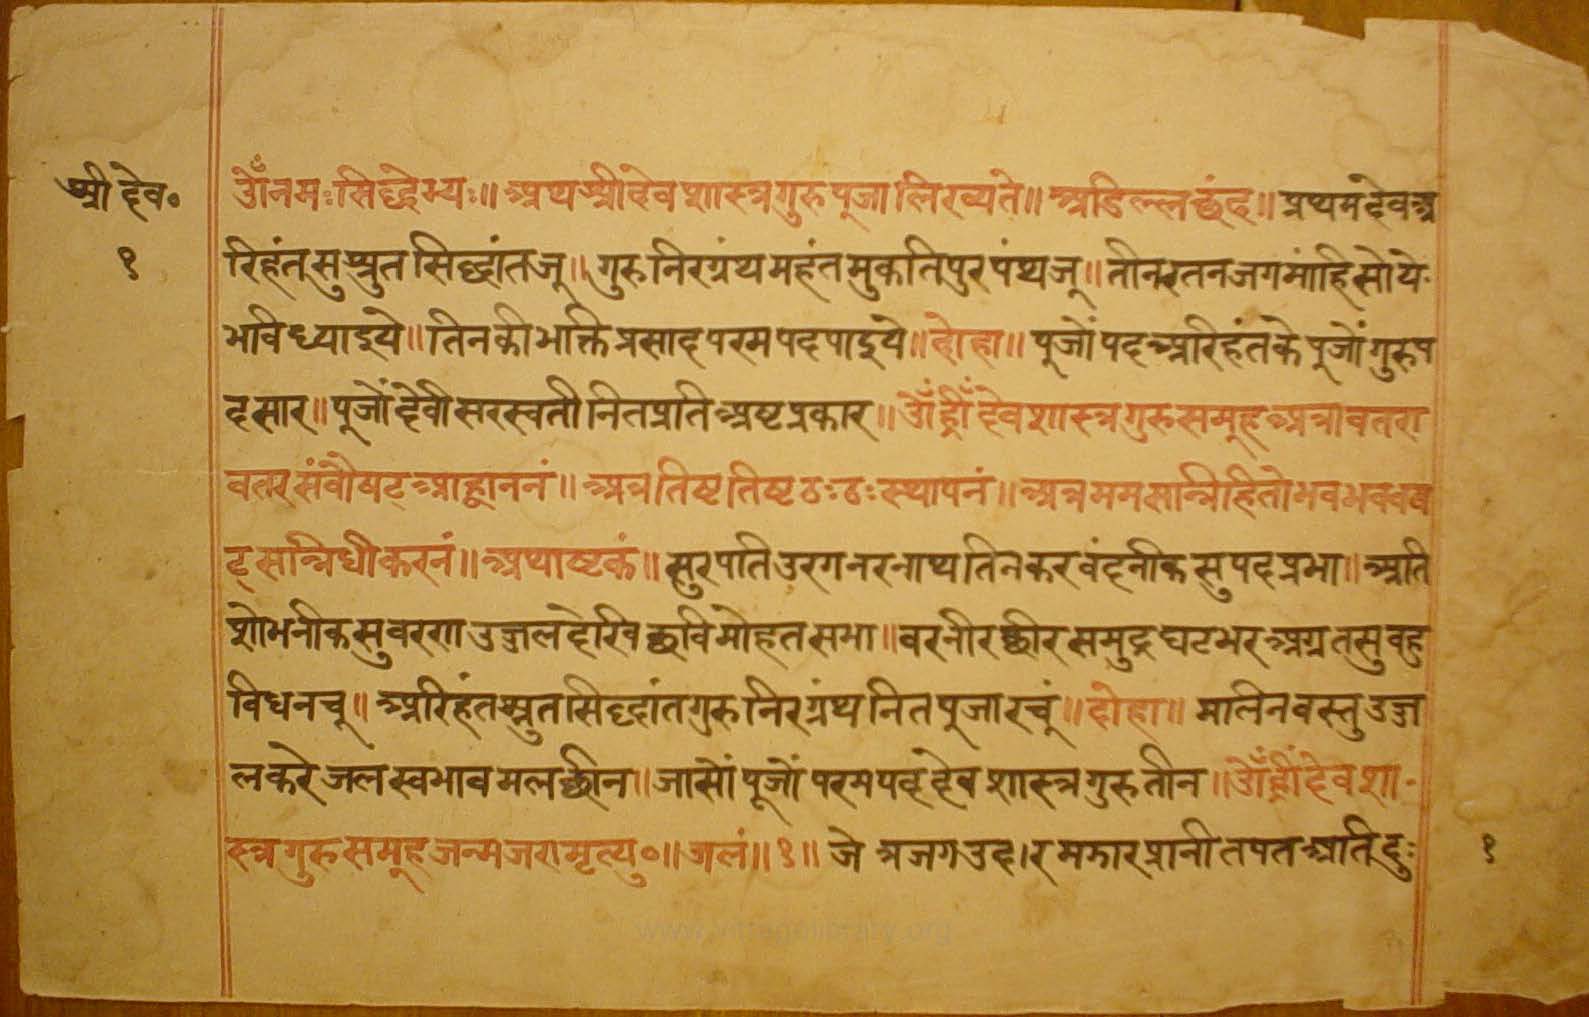 श्री देव॰
१
ॐ नमः सिद्धेभ्यः॥ अथ श्री देव शास्त्र गुरु पूजा लिख्यते॥ अडिल्ल छंद॥ प्रथम देव अ
रिहंत सु श्रुत सिद्धांत जू॥ गुरु निरग्रंथ महंत मुकतिपुर पंथ जू॥ तीन रतन जग मांहि सो ये
भवि ध्याइये॥ तिनकी भक्ति प्रसाद परम पद पाइये॥ दोहा॥ पूजों पद अरिहंत के पूजों गुरु प
द सार॥ पूजों देवी सरस्वती नित प्रति अष्ट प्रकार॥ ॐ ह्रीँ देव शास्त्र गुरु समूह अत्रावतरा
वतर संवौषट् आह्वाननं॥ अत्र तिष्ट तिष्ट ठः ठः स्थापनं॥ अत्र मम सान्निहितो भव भव वष
ट् सन्निधीकरनं॥ अथाष्टकं॥ सुरपति उरग नरनाथ तिनकर वंदनीक सुपद प्रभा॥ अति
शोभनीक सुवरण उज्जल देखि छवि मोहत सभा॥ वर नीर छीर समुद्र घट भर अग्र तसु वहु
विध नचू॥ अरिहंत श्रुत सिद्धांत गुरु निरग्रंथ नित पूजा रचूं॥ दोहा॥ मलिन वस्तु उज्ज
ल करे जल स्वभाव मल छीन॥ जासों पूजों परम पद देव शास्त्र गुरु तीन॥ ॐ ह्रीं देव शा
स्त्र गुरु समूह जन्म जरा मृत्यु॰॥ जलं॥ १॥ जे त्रजग उदार मझार प्रानी तपत अति दु
१
www.jaingqlibrary.org